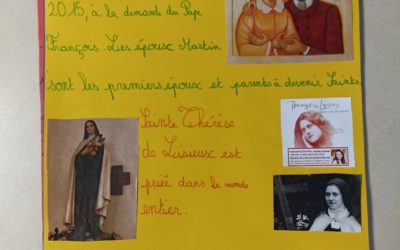 2015, à la demande du Pape
François Les époux Martin
sont les premiers époux et parents à devenir Saints.
Sainte Thérèse
de Lisieux est
priée dans le monde
entier.
Thérèse de Lisieux